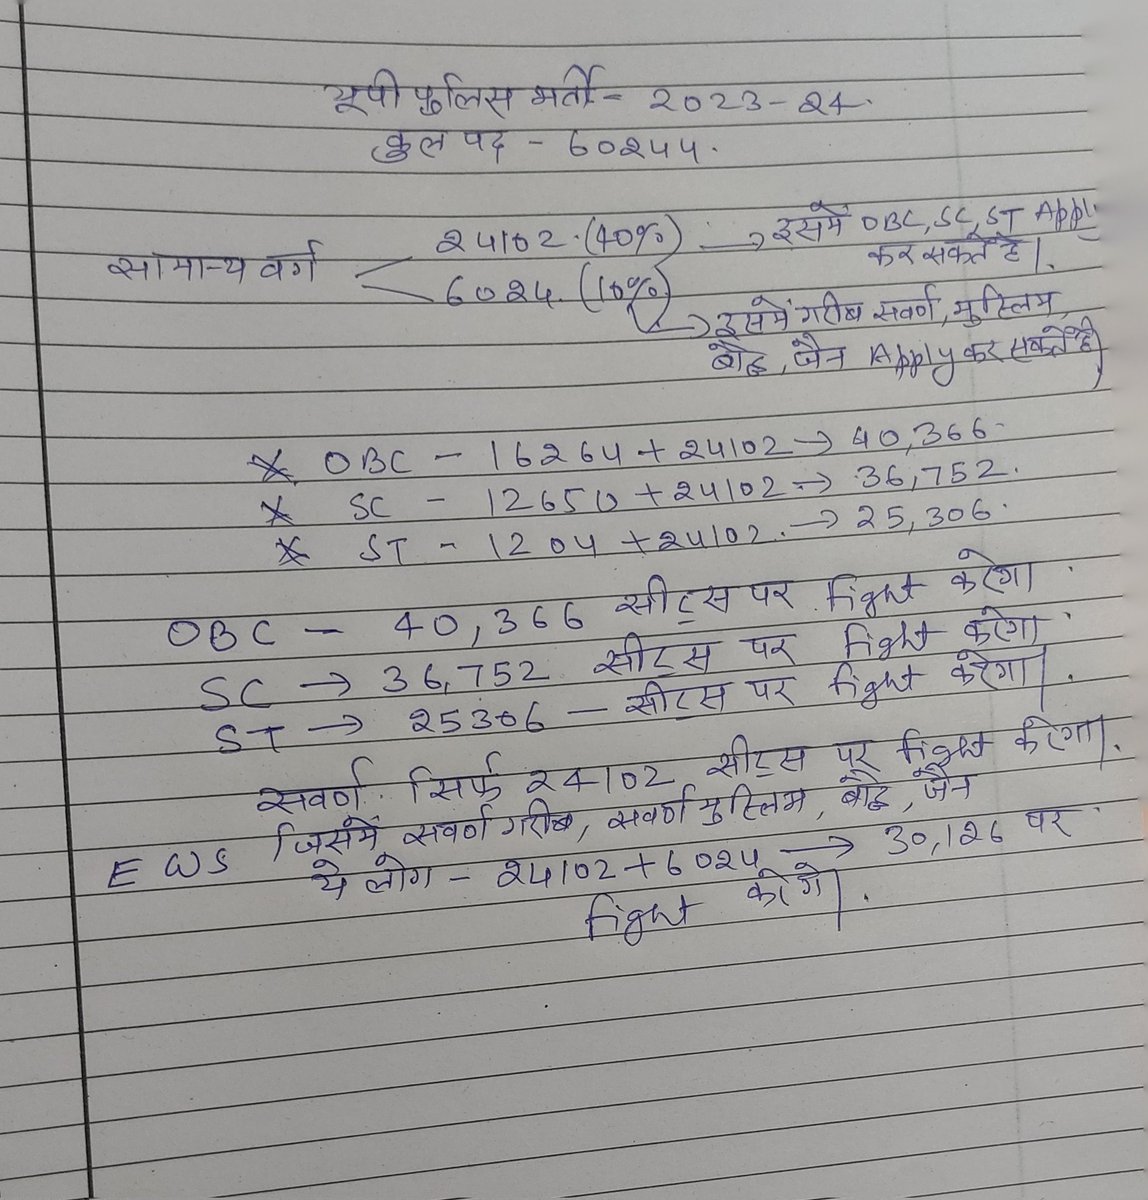 यूपी पुलिस भर्ती - 2023-24.
कुल पद - 60244.
सामान्य वर्ग
24102.(40%) → इसमें OBC, SC, ST Apply
कर सकते है।.
6024.(10%)
→ इसमें गरीब सवर्ण, मुस्लिम,
बौद्ध, जैन Apply कर सकते है
* OBC - 16264 + 24102 → 40,366.
* SC - 12650 + 24102 → 36,752.
* ST - 1204 + 24102. → 25,306.
OBC - 40,366 सीट्स पर fight करेगा।
SC → 36,752 सीट्स पर fight करेगा
ST → 25306 - सीट्स पर fight करेगा।.
सवर्ण सिर्फ 24102 सीट्स पर fight करेगा।.
जिसमें सवर्ण गरीब, सवर्ण मुस्लिम, बौद्ध, जैन
EWS ये लोग - 24102 + 6024 → 30,126 पर
fight करेगे।.